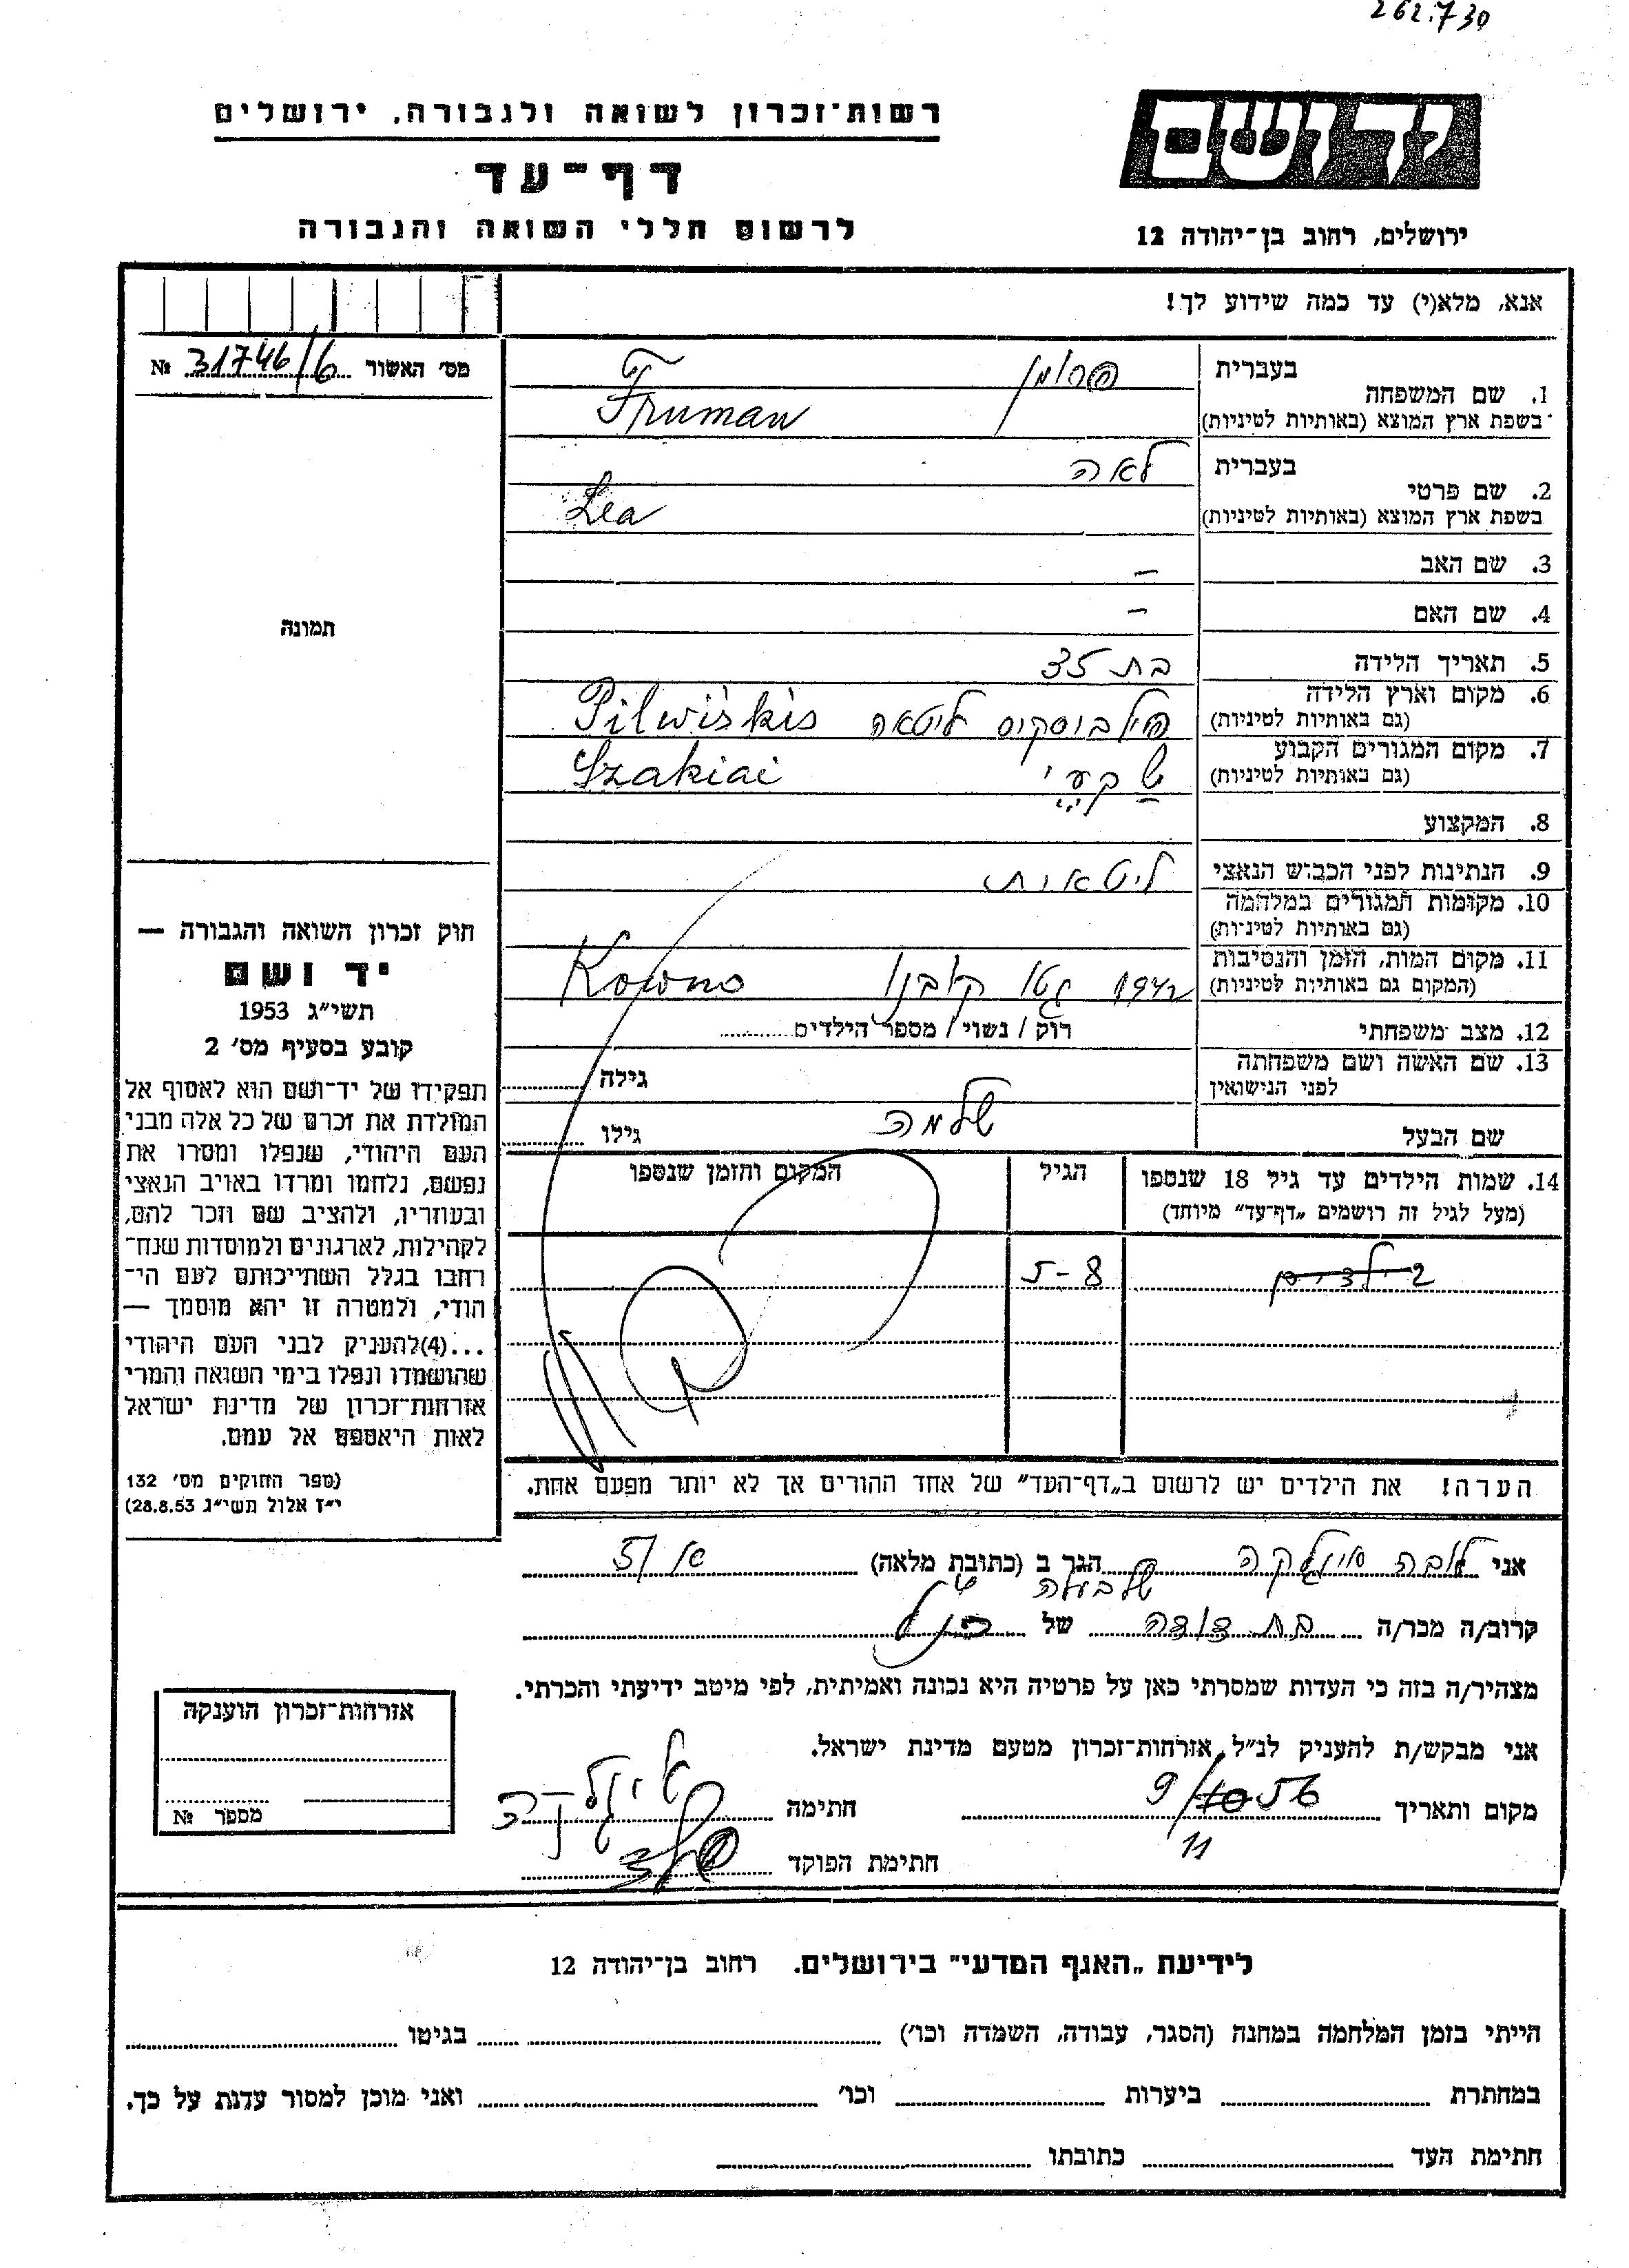 262.730
רשות־זכרון לשואה ולגבורה, ירושלים
דף־עד
לרשום חללי השואה והגבורה
יד ושם
ירושלים, רחוב בן־יהודה 12
אנא, מלא(י) עד כמה שידוע לך!
מס׳ האשור 31746/6 №
תמונה
1. שם המשפחה בעברית פרומן
בשפת ארץ המוצא (באותיות לטיניות) Fruman
2. שם פרטי בעברית לאה
בשפת ארץ המוצא (באותיות לטיניות) Lea
3. שם האב –
4. שם האם –
5. תאריך הלידה בת 35
6. מקום וארץ הלידה (גם באותיות לטיניות) פילבוסקיס ליטאה Pilwiskis
7. מקום המגורים הקבוע (גם באותיות לטיניות) שקעי Szakiai
8. המקצוע
9. הנתינות לפני הכבוש הנאצי ליטאית
10. מקומות המגורים במלחמה (גם באותיות לטיניות)
11. מקום המות, הזמן והנסיבות (המקום גם באותיות לטיניות) 1942 גטו קובנו Kowno
12. מצב משפחתי רוק / נשוי / מספר הילדים
13. שם האשה ושם משפחתה לפני הנישואין גילה
שם הבעל שלמה גילו
14. שמות הילדים עד גיל 18 שנספו (מעל לגיל זה רושמים „דף־עד” מיוחד) הגיל המקום והזמן שנספו
2 ילדים 5-8
הערה! את הילדים יש לרשום ב„דף־העד” של אחד ההורים אך לא יותר מפעם אחת.
חוק זכרון השואה והגבורה —
יד ושם
תשי״ג 1953
קובע בסעיף מס׳ 2
תפקידו של יד־ושם הוא לאסוף אל
המולדת את זכרם של כל אלה מבני
העם היהודי, שנפלו ומסרו את
נפשם, נלחמו ומרדו באויב הנאצי
ובעוזריו, ולהציב שם וזכר להם,
לקהילות, לארגונים ולמוסדות שנח־
רחבו בגלל השתייכותם לעם הי־
הודי, ולמטרה זו יהא מוסמך —
...(4)להעניק לבני העם היהודי
שהושמדו ונפלו בימי השואה והמרי
אזרחות־זכרון של מדינת ישראל
לאות היאספם אל עמם.
(ספר החוקים מס׳ 132
י״ז אלול תשי״ג 28.8.53)
אני הגר ב (כתובת מלאה)
קרוב/ה מכר/ה בת דודה של
מצהיר/ה בזה כי העדות שמסרתי כאן על פרטיה היא נכונה ואמיתית, לפי מיטב ידיעתי והכרתי.
אני מבקש/ת להעניק לנ״ל, אזרחות־זכרון מטעם מדינת ישראל.
מקום ותאריך 9/10 56 חתימה
11
חתימת הפוקד
אזרחות־זכרון הוענקה
מספר №
לידיעת „האגף המדעי” בירושלים. רחוב בן־יהודה 12
הייתי בזמן המלחמה במחנה (הסגר, עבודה, השמדה וכו׳) בגיטו
במחתרת ביערות וכו׳ ואני מוכן למסור עדות על כך.
חתימת העד כתובתו